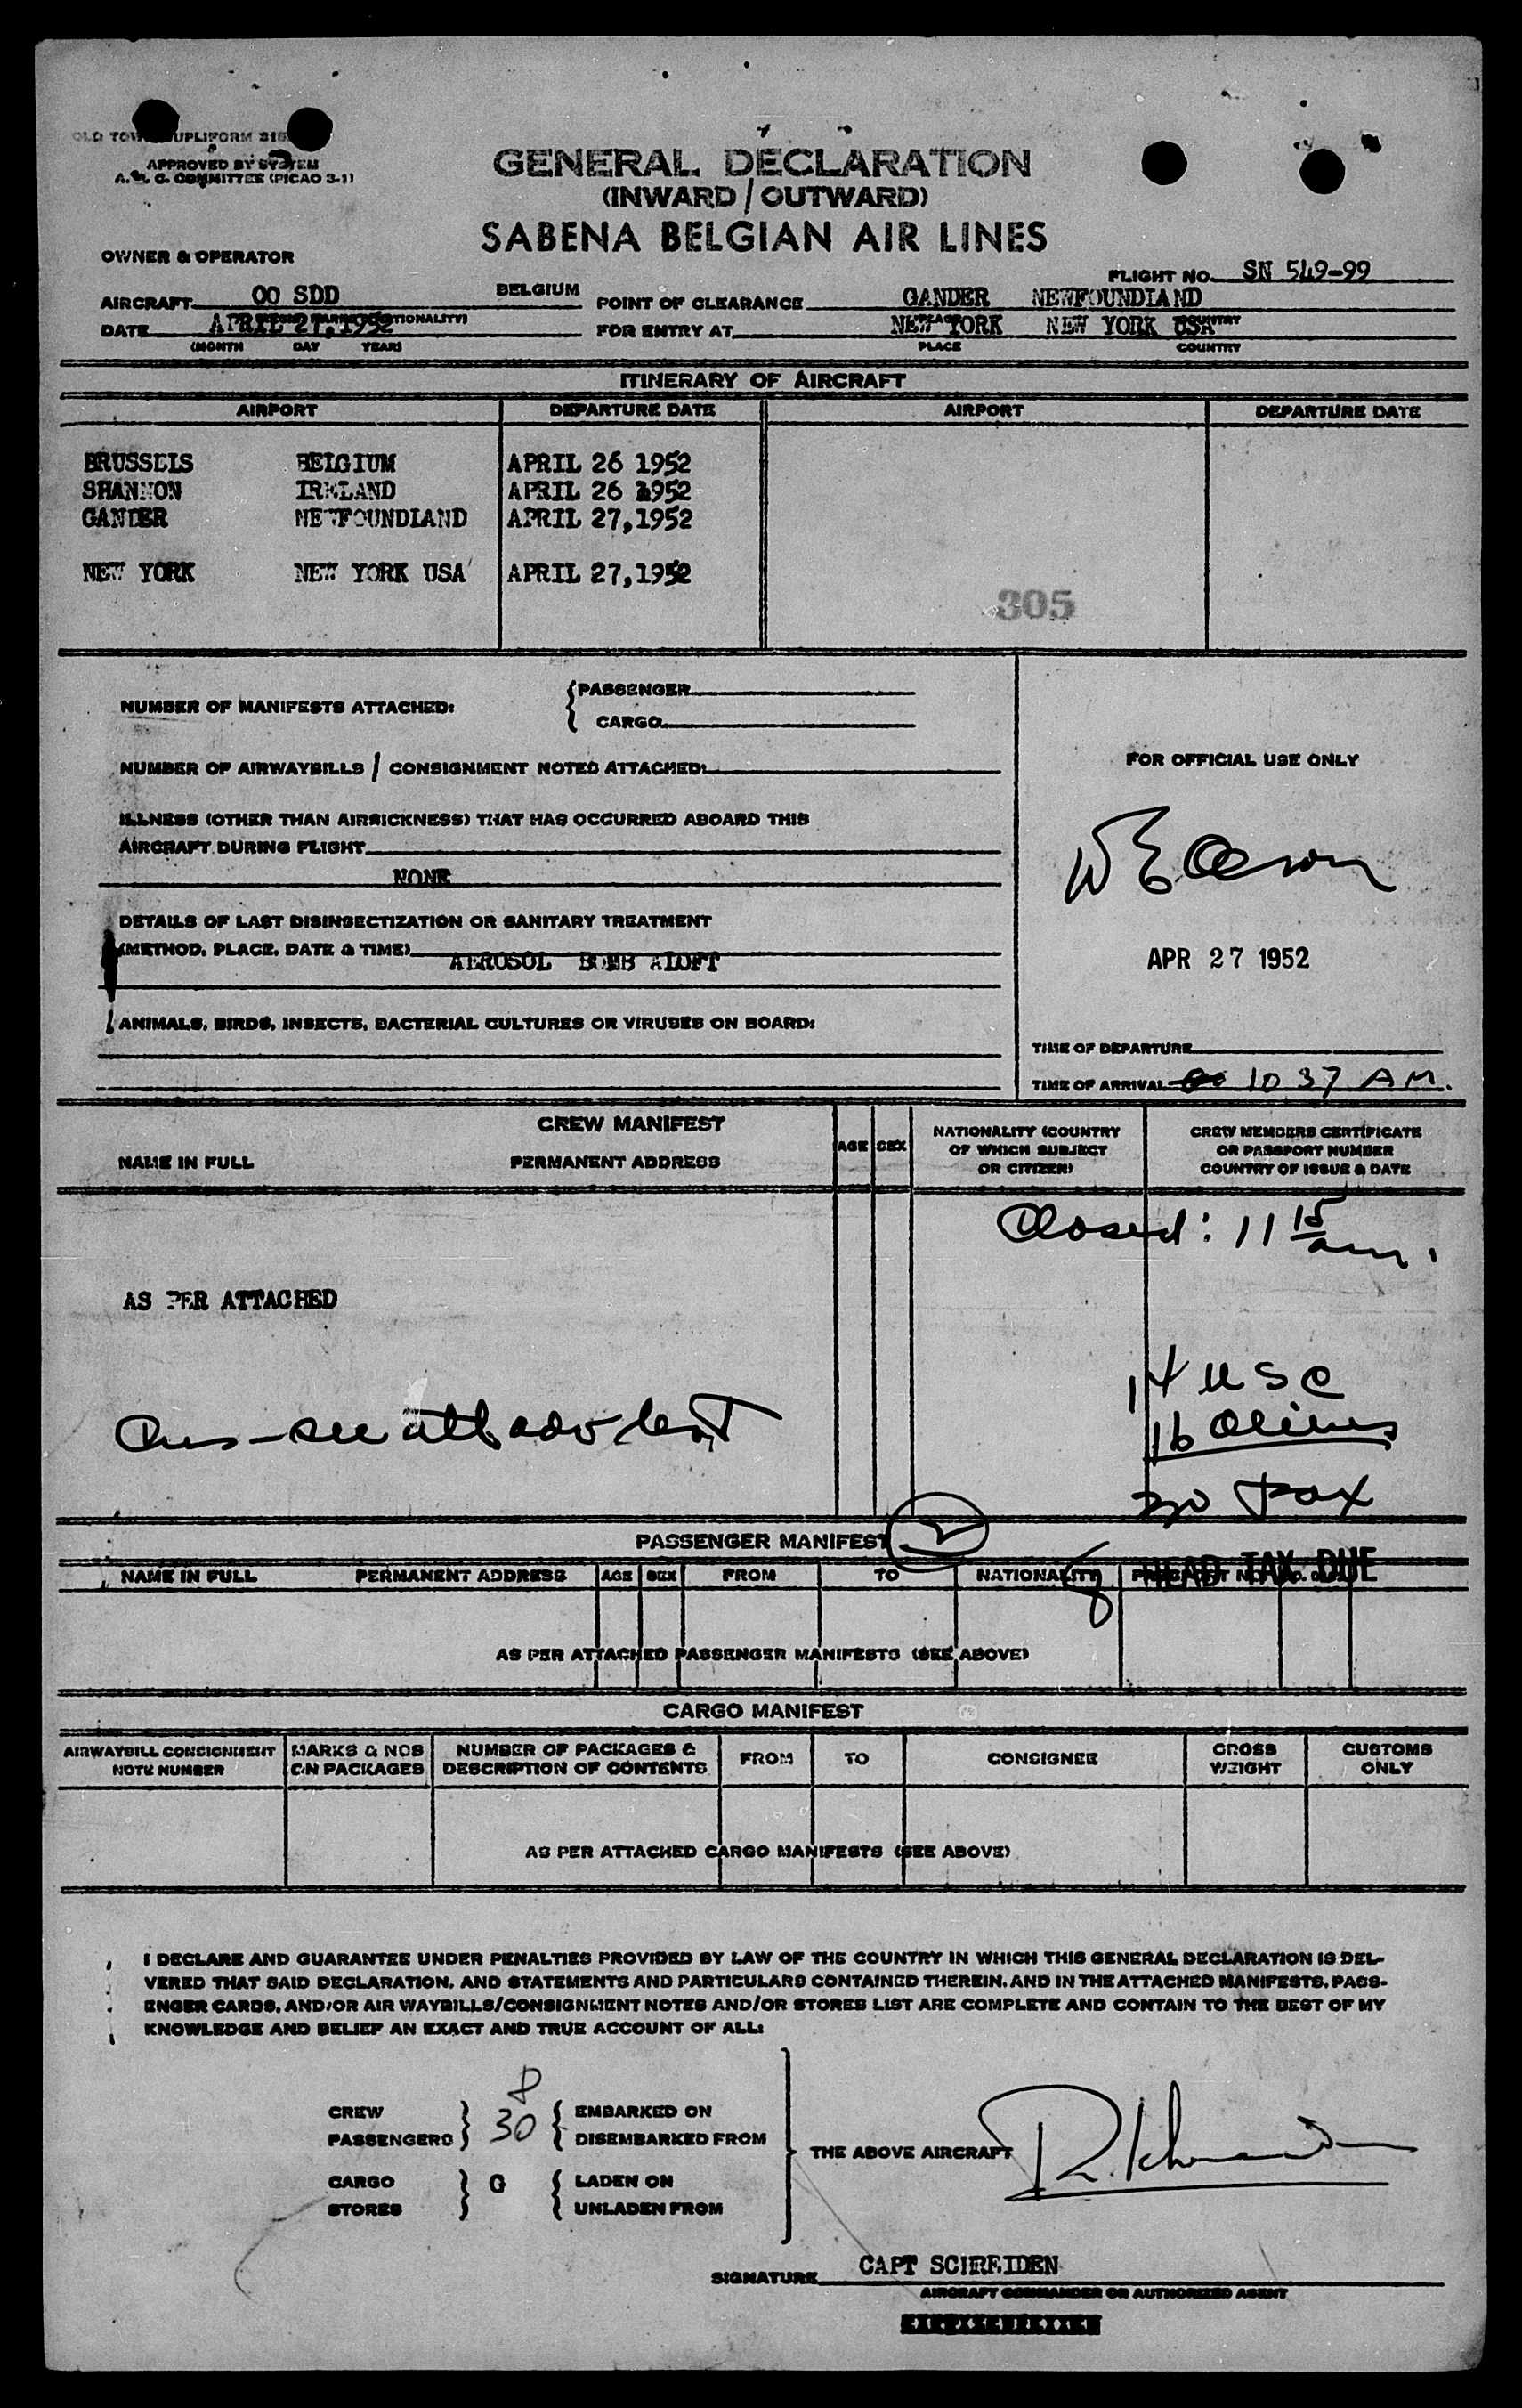 APPROVED BY SYSTEM
COMMITTEE (PICAO 3-1)
GENERAL DECLARATION
(INWARD / OUTWARD)
SABENA BELGIAN AIR LINES
OWNER & OPERATOR
FLIGHT NO. SN 549-99
AIRCRAFT OO SDD BELGIUM
POINT OF CLEARANCE GANDER NEWFOUNDLAND
DATE APRIL 27,1952
(MONTH DAY YEAR)
FOR ENTRY AT NEW YORK NEW YORK USA
PLACE COUNTRY
ITINERARY OF AIRCRAFT
AIRPORT DEPARTURE DATE AIRPORT DEPARTURE DATE
BRUSSELS BELGIUM APRIL 26 1952
SHANNON IRELAND APRIL 26 1952
GANDER NEWFOUNDLAND APRIL 27,1952
NEW YORK NEW YORK USA APRIL 27,1952
305
NUMBER OF MANIFESTS ATTACHED:
PASSENGER
CARGO
NUMBER OF AIRWAYBILLS / CONSIGNMENT NOTES ATTACHED:
ILLNESS (OTHER THAN AIRSICKNESS) THAT HAS OCCURRED ABOARD THIS
AIRCRAFT DURING FLIGHT
NONE
DETAILS OF LAST DISINSECTIZATION OR SANITARY TREATMENT
(METHOD, PLACE, DATE & TIME)
AEROSOL BOMB ALOFT
ANIMALS, BIRDS, INSECTS, BACTERIAL CULTURES OR VIRUSES ON BOARD:
FOR OFFICIAL USE ONLY
APR 27 1952
TIME OF DEPARTURE
TIME OF ARRIVAL 10 37 AM.
CREW MANIFEST
NAME IN FULL PERMANENT ADDRESS
AGE SEX
NATIONALITY (COUNTRY
OF WHICH SUBJECT
OR CITIZEN)
CREW MEMBERS CERTIFICATE
OR PASSPORT NUMBER
COUNTRY OF ISSUE & DATE
Closed: 11 15 am.
AS PER ATTACHED
14 USC
16 Aliens
30 Pax
PASSENGER MANIFEST
HEAD TAX DUE
NAME IN FULL PERMANENT ADDRESS AGE SEX FROM TO NATIONALITY
AS PER ATTACHED PASSENGER MANIFESTS (SEE ABOVE)
CARGO MANIFEST
AIRWAYBILL CONSIGNMENT
NOTE NUMBER
MARKS & NOS
ON PACKAGES
NUMBER OF PACKAGES &
DESCRIPTION OF CONTENTS
FROM
TO
CONSIGNEE
GROSS
WEIGHT
CUSTOMS
ONLY
AS PER ATTACHED CARGO MANIFESTS (SEE ABOVE)
I DECLARE AND GUARANTEE UNDER PENALTIES PROVIDED BY LAW OF THE COUNTRY IN WHICH THIS GENERAL DECLARATION IS DEL-
VERED THAT SAID DECLARATION, AND STATEMENTS AND PARTICULARS CONTAINED THEREIN, AND IN THE ATTACHED MANIFESTS, PASS-
ENGER CARDS, AND/OR AIR WAYBILLS/CONSIGNMENT NOTES AND/OR STORES LIST ARE COMPLETE AND CONTAIN TO THE BEST OF MY
KNOWLEDGE AND BELIEF AN EXACT AND TRUE ACCOUNT OF ALL:
CREW 8 EMBARKED ON
PASSENGERS 30 DISEMBARKED FROM
THE ABOVE AIRCRAFT
CARGO 0 LADEN ON
STORES UNLADEN FROM
SIGNATURE CAPT SCHREIDEN
AIRCRAFT COMMANDER OR AUTHORIZED AGENT